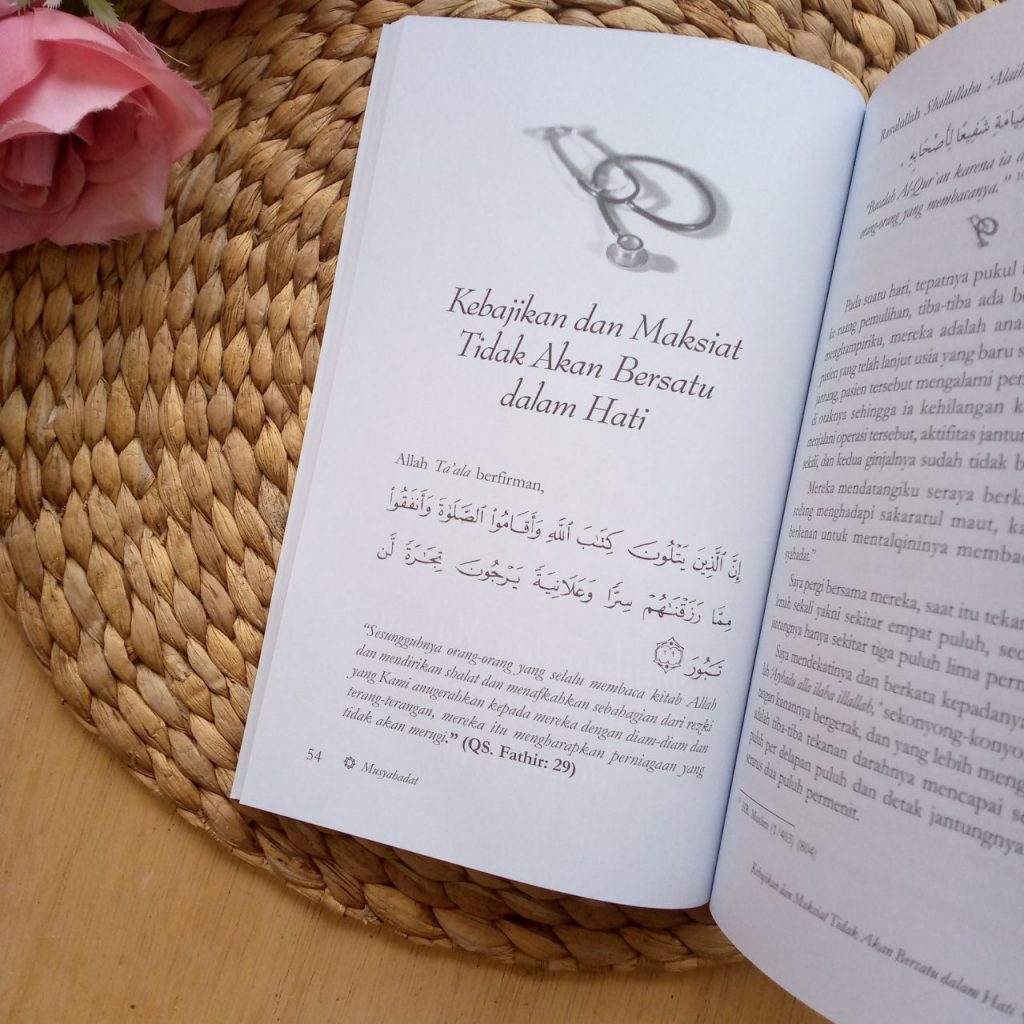 Kebajikan dan Maksiat
Tidak Akan Bersatu
dalam Hati
Allah Ta'ala berfirman,
إِنَّ ٱلَّذِينَ يَتْلُونَ كِتَٰبَ ٱللَّهِ وَأَقَامُوا۟ ٱلصَّلَوٰةَ وَأَنفَقُوا۟
مِمَّا رَزَقْنَٰهُمْ سِرًّا وَعَلَانِيَةً يَرْجُونَ تِجَٰرَةً لَّن
تَبُورَ ٢٩
"Sesungguhnya orang-orang yang selalu membaca kitab Allah
dan mendirikan shalat dan menafkahkan sebahagian dari rezki
yang Kami anugerahkan kepada mereka dengan diam-diam dan
terang-terangan, mereka itu mengharapkan perniagaan yang
tidak akan merugi." (QS. Fathir: 29)
54 Musyahadat
Rasulallah Shallallahu 'Alaih
شَفِيعًا لِأَصْحَابِهِ .
"Bacalah Al-Qur'an karena ia
orang-orang yang membacanya."
Pada suatu hari, tepatnya pukul
ke ruang pemulihan, tiba-tiba ada
menghampiriku, mereka adalah
pasien yang telah lanjut usia yang baru
jantung, pasien tersebut mengalami
di otaknya sehingga ia kehilangan
menjalani operasi tersebut, aktifitas
sekali, dan kedua ginjalnya sudah tidak
Mereka mendatangiku seraya
sedang menghadapi sakaratul maut,
berkenan untuk mentalqininya
syahadat."
Saya pergi bersama mereka, saat itu
lemah sekali yakni sekitar empat puluh,
jantungnya hanya sekitar tiga puluh lima
Saya mendekatinya dan berkata kepadanya
lah 'Asyhadu alla ilaha illallah,'
tangan kanannya bergerak, dan yang lebih
adalah tiba-tiba tekanan darahnya mencapai
puluh per delapan puluh dan detak jantungnya
seratus dua puluh permenit.
HR. Muslim (1/463) (804)
Kebajikan dan Maksiat Tidak Akan Bersatu dalam Hati